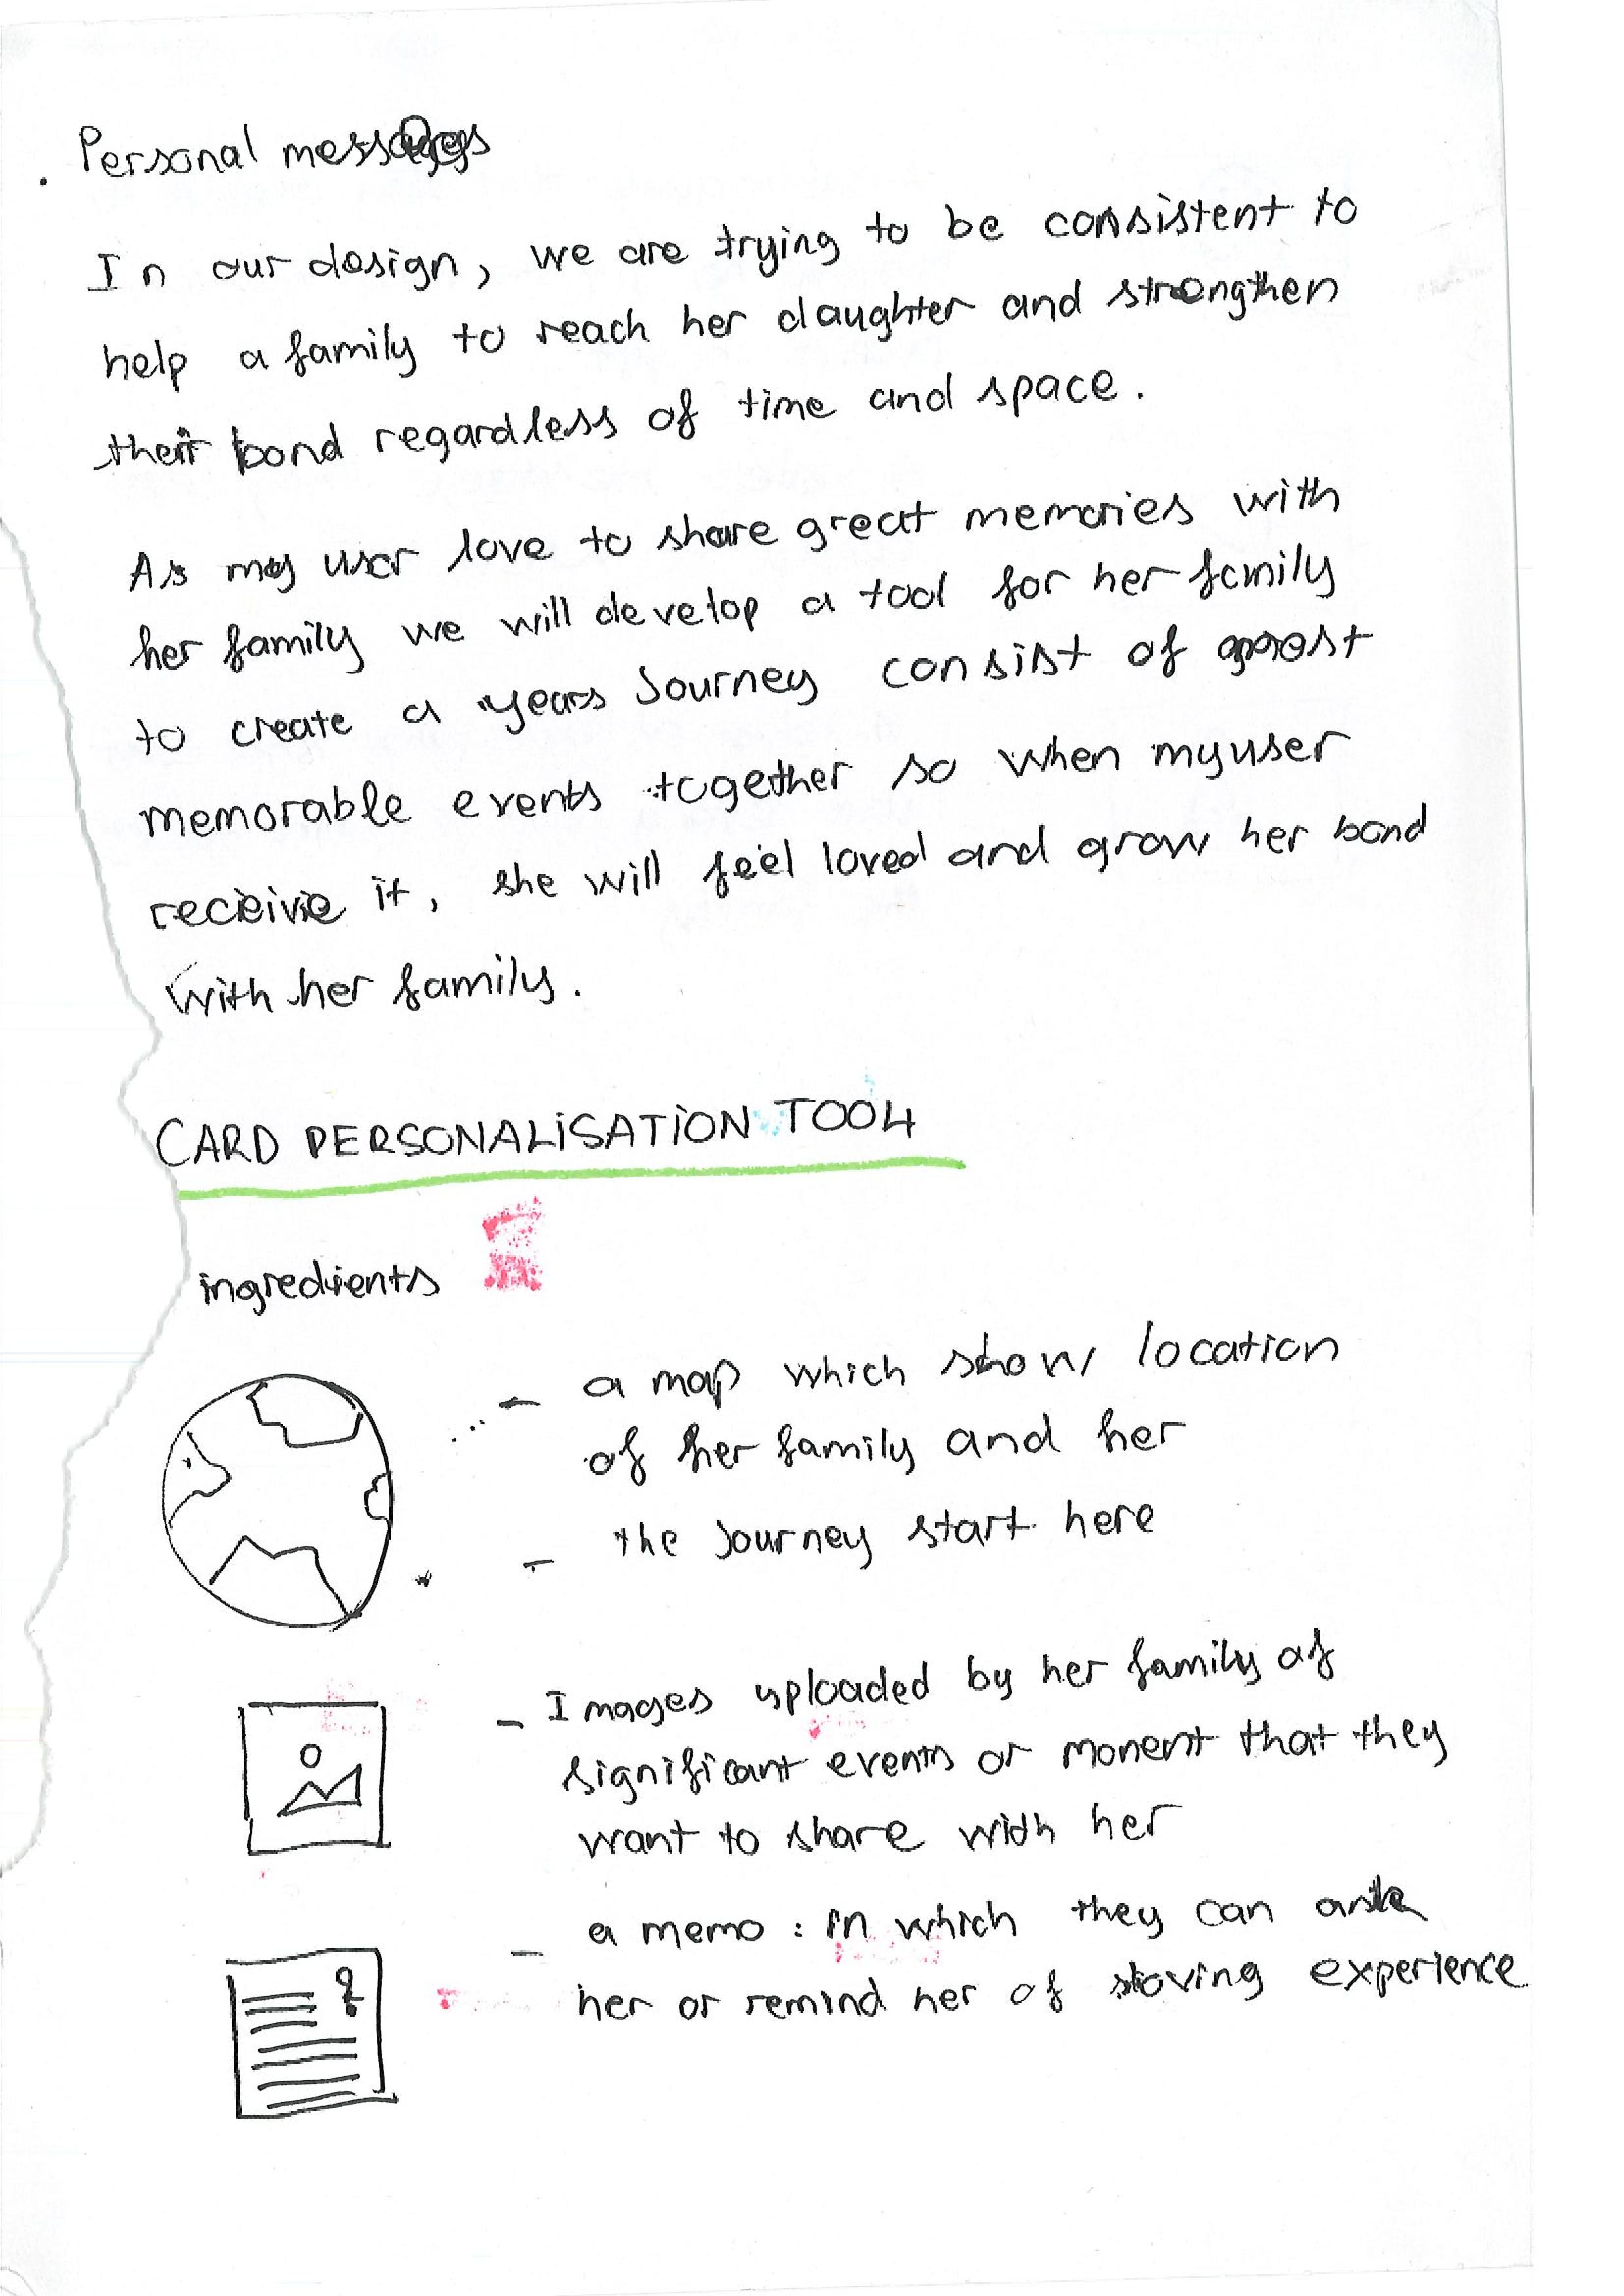 . Personal messages
In our design, we are trying to be consistent to
help a family to reach her daughter and strengthen
their bond regardless of time and space.
As my user love to share great memories with
her family we will develop a tool for her family
to create a years Journey consist of most
memorable events together so when my user
receivie it, she will feel loved and grow her bond
with her family.
CARD PERSONALiSATiON TOOL
ingredients
- a map which show location
of her family and her
- the Journey start here
- Images uploaded by her family of
significant events or moment that they
want to share with her
- a memo : in which they can
her or remind her of experience